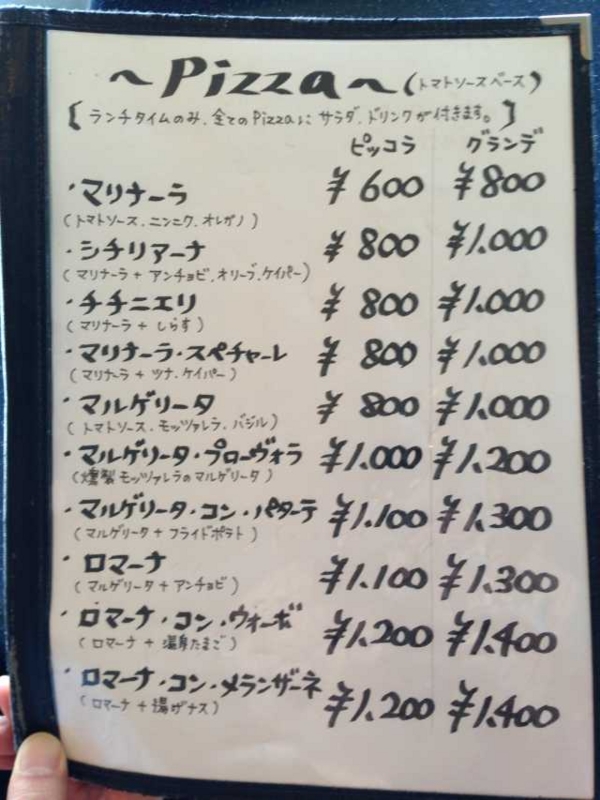 ～Pizza～(トマトソースベース)
【ランチタイムのみ、全てのPizzaに サラダ、ドリンクが付きます。】
ピッコラ グランデ
・マリナーラ ¥600 ¥800
(トマトソース、ニンニク、オレガノ)
・シチリアーナ ¥800 ¥1.000
(マリナーラ+アンチョビ、オリーブ、ケイパー)
・チチニエリ ¥800 ¥1.000
(マリナーラ+しらす)
・マリナーラ・スペチャーレ ¥800 ¥1.000
(マリナーラ+ツナ、ケイパー)
・マルゲリータ ¥800 ¥1.000
(トマトソース、モッツァレラ、バジル)
・マルゲリータ・プローヴォラ ¥1.000 ¥1.200
(燻製モッツァレラのマルゲリータ)
・マルゲリータ・コン・パターテ ¥1.100 ¥1.300
(マルゲリータ+フライドポテト)
・ロマーナ ¥1.100 ¥1.300
(マルゲリータ+アンチョビ)
・ロマーナ・コン・ウォーボ ¥1.200 ¥1.400
(ロマーナ+温泉たまご)
・ロマーナ・コン・メランザーネ ¥1.200 ¥1.400
(ロマーナ+揚げナス)